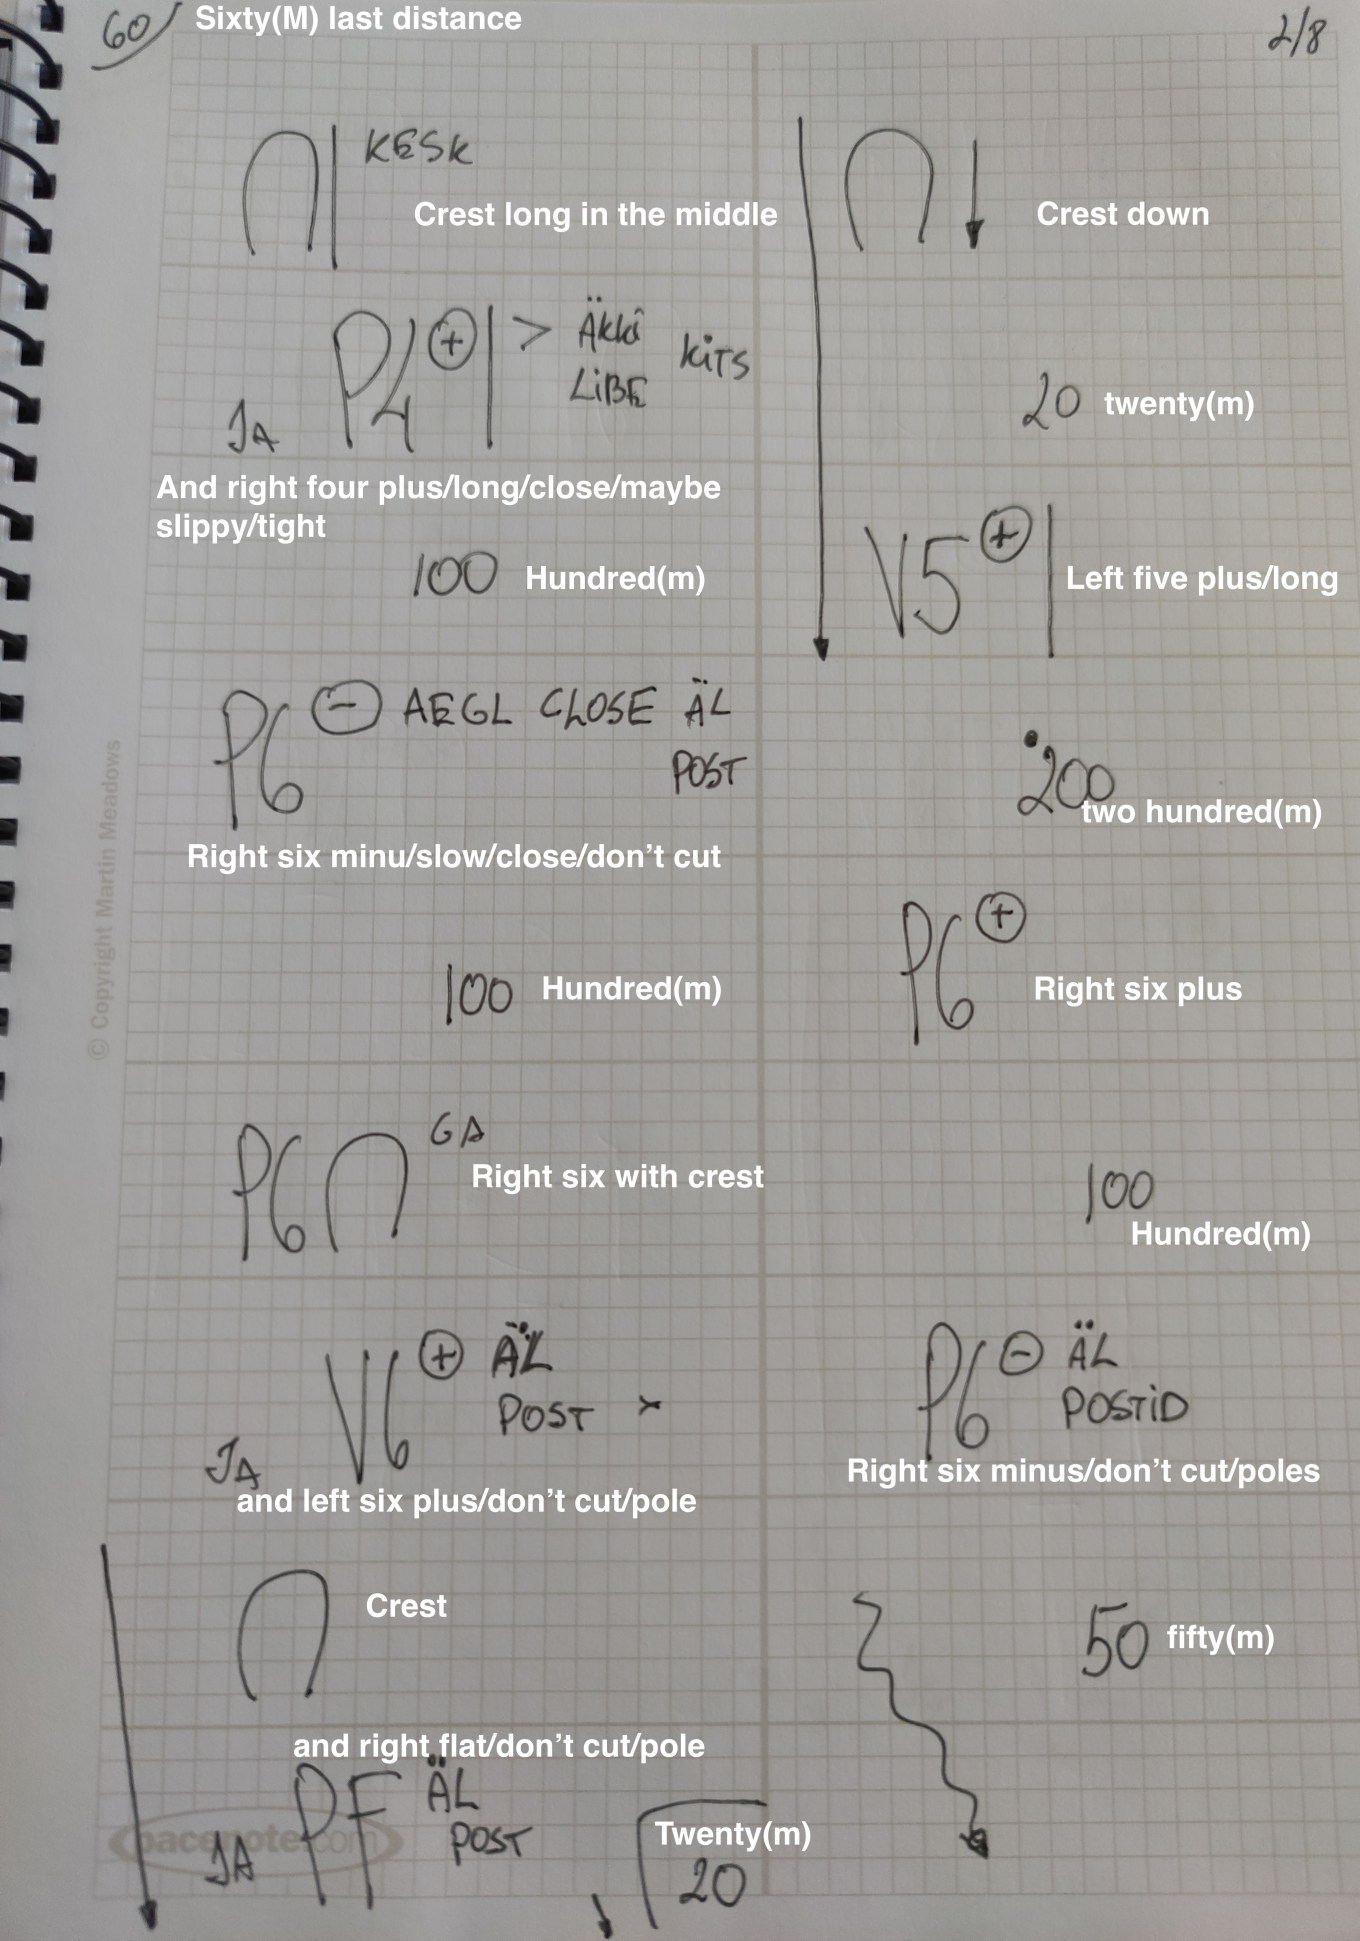 60/ Sixty(M) last distance
2/8
KESK
Crest long in the middle
P4 + > ÄKKi KiTS
LiBE
JA
And right four plus/long/close/maybe
slippy/tight
100 Hundred(m)
P6 - AEGL CLOSE ÄL
POST
Right six minu/slow/close/don't cut
100 Hundred(m)
P6 GA
Right six with crest
V6 + ÄL
POST
JA
and left six plus/don't cut/pole
Crest
and right flat/don't cut/pole
JA PF ÄL
POST
Twenty(m)
20
Crest down
20 twenty(m)
V5 +
Left five plus/long
200
two hundred(m)
P6 +
Right six plus
100
Hundred(m)
P6 - ÄL
POSTiD
Right six minus/don't cut/poles
50 fifty(m)
© Copyright Martin Meadows
pacenote.com